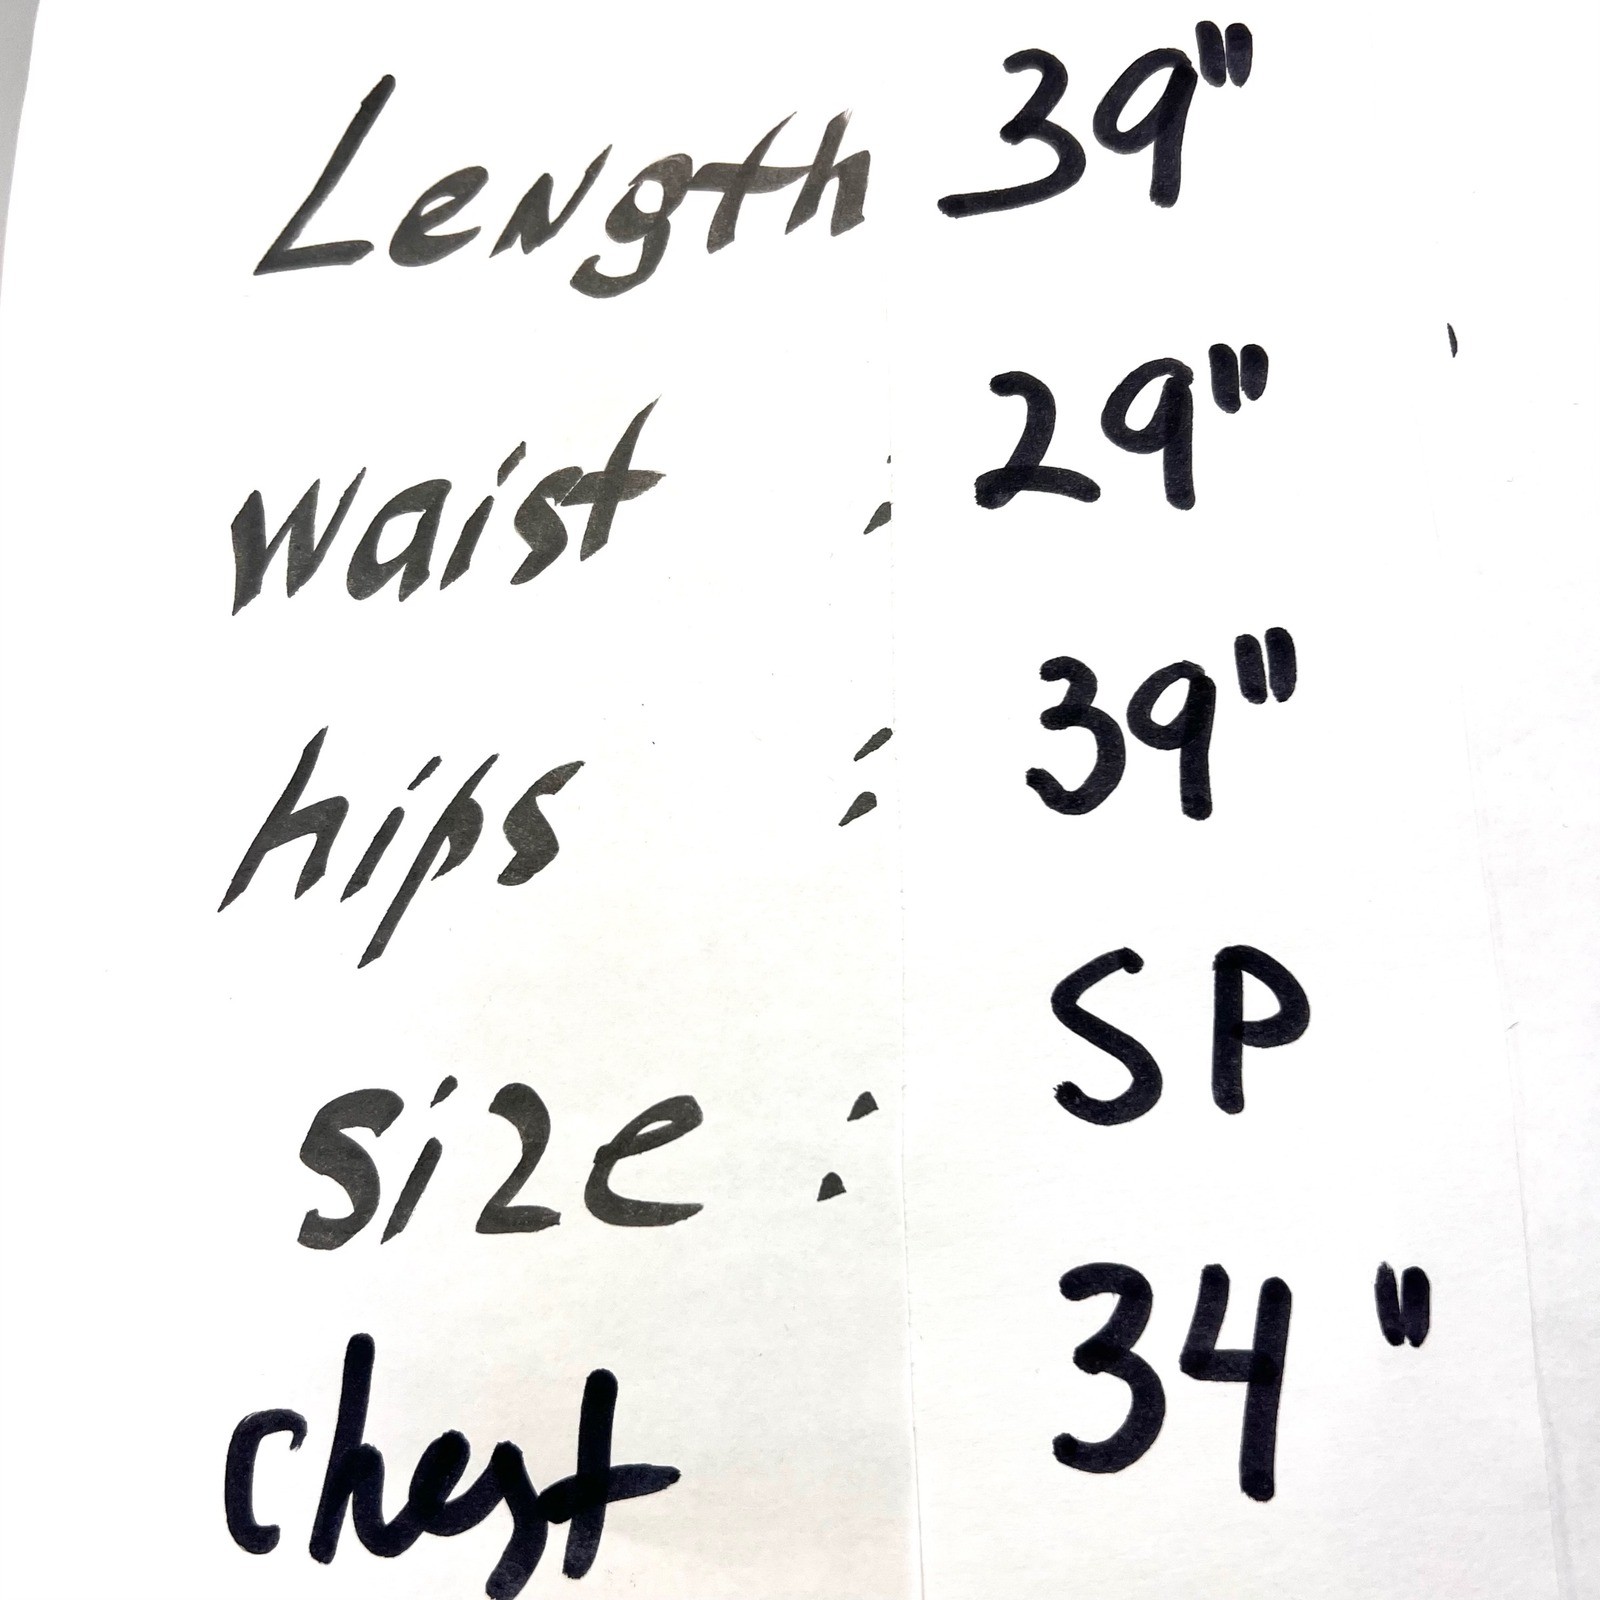 Length 39"
waist : 29"
hips : 39"
Size : SP
chest 34"